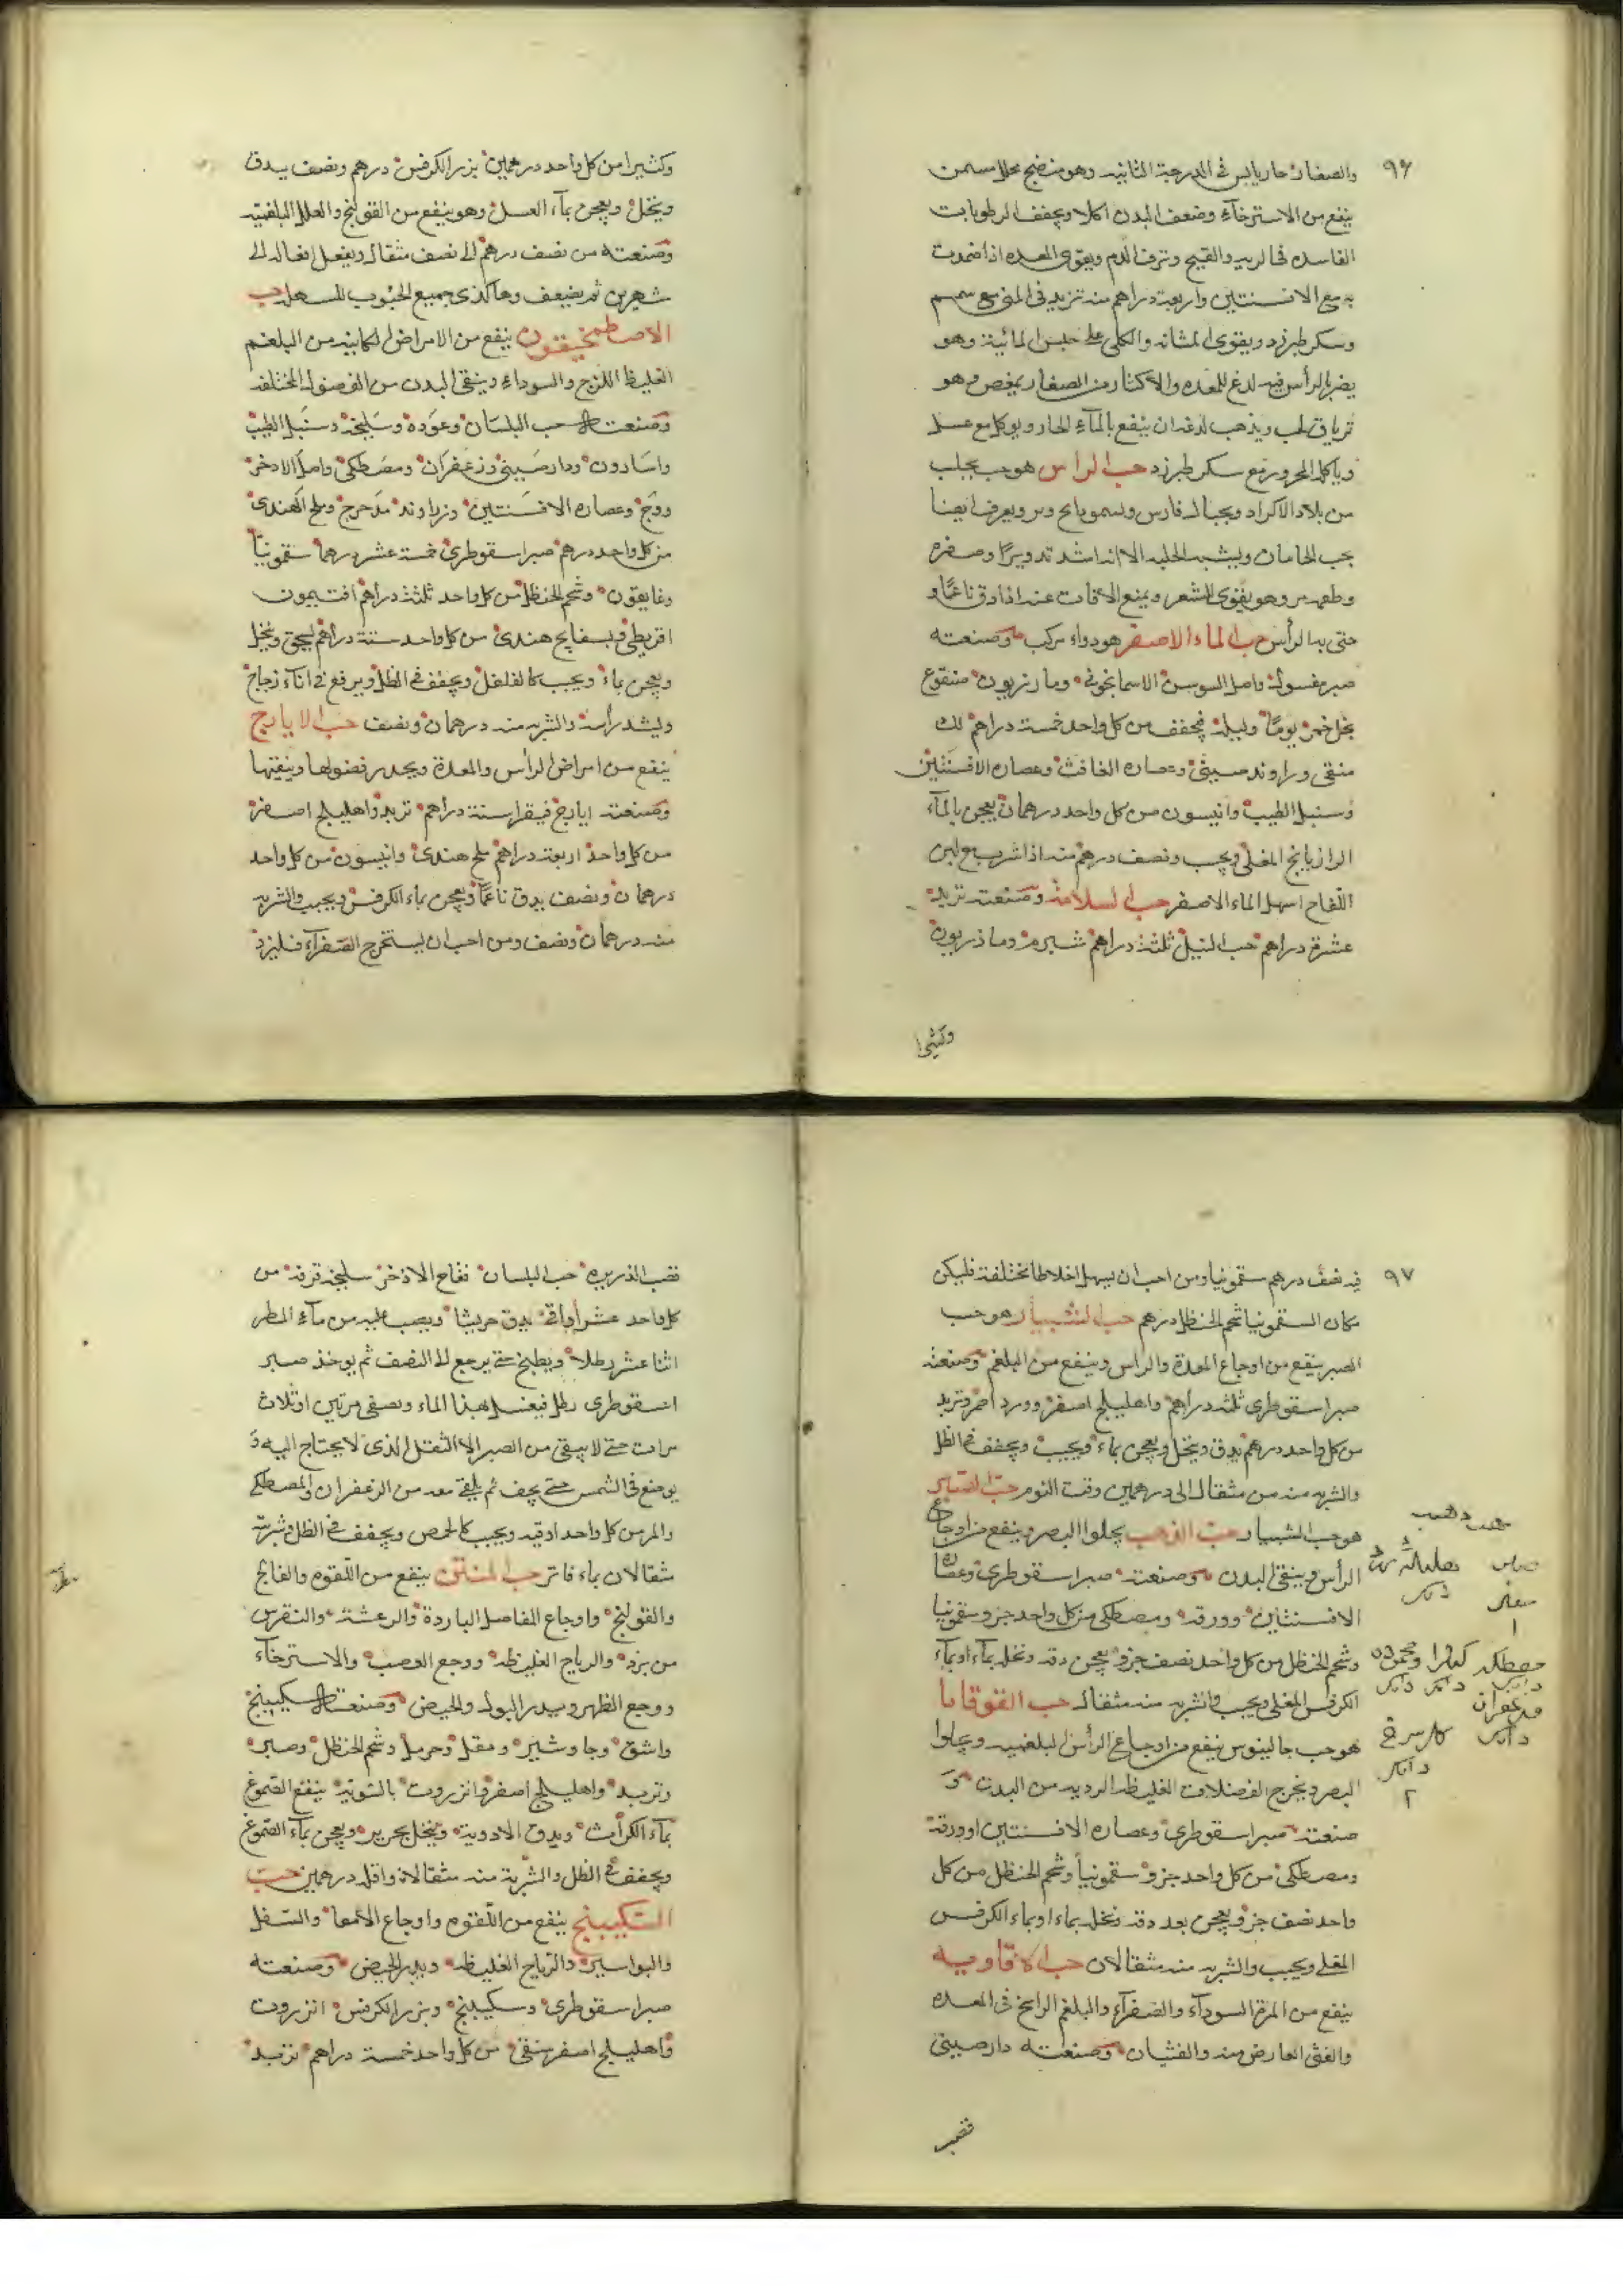 ٩٦
والصغار حار يابس فى الدرجة الثانيه وهو منضج محلل مسمن
ينفع من الاسترخآء وضعف البدن اكلا ويجفف الرطوبات
الفاسده فى الريه والقيح ونزف الدم ويقوى المعده اذا ضمدت
به مع الافسنتين واربعة دراهم منه تزيد فى المنى مع سمسم
وسكر طبرزد ويقوى المثانه والكلى على حبس المائية وهو
يضر بالرأس فيه لدغ للمعده والاكثار من الصغار يمغص وهو
ترياق لحب ويذهب لدغه ان ينقع بالمآء الحار ويوكل مع عسل
وياكله المحرور مع سكر طبرزد حب الراس هو حب يجلب
من بلاد الاكراد وجبال فارس ويعرف ايضا
بحب ويشبه الحلبه الا انه اشد تدويرا وصفره
وطعمه مر وهو يقوى الشعر ويمنع الآفات عنه اذا دق ناعما و
حتى به الرأس حب الماء الاصفر هو دواء مركب وصنعته
صبر مغسول واصل السوسن الاسمانجونى ومازريون منقوع
بخل خمر يوما وليلة مجفف من كل واحد خمسة دراهم لك
منقى وراوند صينى وعصاره الغافث وعصاره الافسنتين
وسنبل الطيب وانيسون من كل واحد درهمان يعجن بالمآء
الرازيانج المغلى ويحبب ونصف درهم منه اذا شرب مع لبن
اللقاح اسهل الماء الاصفر حب السلامة وصنعته تربد
عشرة دراهم حب النيل ثلثة دراهم شبرم ومازريون
وكثيرا
وكثيرا من كل واحد درهمين بزر الكرفس درهم ونصف يدق
وينخل ويعجن بمآء العسل وهو ينفع من القولنج والعلل البلغميه
وصنعته من نصف درهم الى نصف مثقال ويفعل افعاله الى
شهرين ثم يضعف وهاكذى جميع الحبوب المسهله حب
الاصطمخيقون ينفع من الامراض الكاينه من البلغم
الغليظ اللزج والسوداء وينقى البدن من الفضول المختلفه
وصنعته حب البلسان وعوده وسليخة وسنبل الطيب
واسارون ودارصينى وزعفران ومصطكى واصل الاذخر
ووج وعصاره الافسنتين وزراوند مدحرج وملح الهندى
من كل واحد درهم صبر اسقوطرى خمسة عشر درهما سقمونيا
وغاريقون وشحم الحنظل من كل واحد ثلثة دراهم افتيمون
اقريطى وبسفايج هندى من كل واحد ستة دراهم يسحق وينخل
ويعجن بماء ويحبب كالفلفل ويجفف فى الظل ويرفع فى اناء زجاج
ويشد رأسه والشربه منه درهمان ونصف حب الايارج
ينفع من امراض الرأس والمعدة ويحدر فضولها وينقيها
وصنعته ايارج فيقرا ستة دراهم تربد واهليلج اصفر
من كل واحد اربعة دراهم ملح هندى وانيسون من كل واحد
درهمان ونصف يدق ناعما ويعجن بماء الكرفس ويحبب والشربه
منه درهمان ونصف ومن احب ان يستخرج الصفرآء فليزد
٩٧
فيه نصف درهم سقمونيا ومن احب ان يسهل اخلاطا مختلفة فليكن
مكان السقمونيا شحم الحنظل درهم حب الشبيار هو حب
الصبر ينفع من اوجاع المعدة والراس وينفع من البلغم وصنعته
صبر اسقوطرى ثلثه دراهم واهليلج اصفر وورد احمر وتربد
من كل واحد درهم يدق وينخل ويعجن بماء ويحبب ويجفف فى الظل
والشربه منه من مثقال الى درهمين وقت النوم حب الصبر
هو حب الشبيار حب الذهب يجلوا البصر وينفع من اوجاع
الرأس وينقى البدن وصنعته صبر اسقوطرى وعصاره
الافسنتين وورقه ومصطكى من كل واحد جزو سقمونيا
وشحم الحنظل من كل واحد نصف جزو يعجن دقه ونخله بمآء او بمآء
الكرفس المغلى ويحبب والشربه منه مثقال حب القوقايا
هو حب جالينوس ينفع من اوجاع الرأس البلغميه ويجلوا
البصر ويخرج الفضلات الغليظه الرديه من البدن و
صنعته صبر اسقوطرى وعصاره الافسنتين او ورقه
ومصطكى من كل واحد جزو سقمونيا وشحم الحنظل من كل
واحد نصف جزو يعجن بعد دقه ونخله بماء او بماء الكرفس
المغلى ويحبب والشربه منه مثقالان حب الافاويه
ينفع من المرة السودآء والصفرآء والبلغم الراسخ فى المعده
والغثى العارض منه والغثيان وصنعته دارصينى
قصب
قصب الذريره حب البلسان فقاح الاذخر سليخه قرفه من
كل واحد عشر اواق يدق جريشا ويصب عليه من مآء المطر
اثنا عشر رطلا ويطبخ حتى يرجع الى النصف ثم يوخذ صبر
اسقوطرى رطل فيغسل بهذا الماء ويصفى مرتين او ثلاث
مرات حتى لا يبقى من الصبر الا الثفل الذى لا يحتاج اليه و
يوضع فى الشمس حتى يجف ثم يلقى معه من الزعفران والمصطكى
والمر من كل واحد اوقيه ويحبب كالحمص ويجفف فى الظل وشربته
مثقالان بماء فاتر حب المنتن ينفع من اللقوه والفالج
والقولنج واوجاع المفاصل الباردة والرعشة والنقرس
من برد والرياح الغليظه ووجع العصب والاسترخآء
ووجع الظهر ويدر البول والحيض وصنعته سكبينج
واشق وجاوشير ومقل وحرمل وشحم الحنظل وصبر
وتربد واهليلج اصفر وانزروت بالسويه ينقع الصموغ
بمآء الكراث ويدق الادوية وينخل بحرير ويعجن بمآء الصموغ
ويجفف فى الظل والشربة منه مثقالان واقله درهمين حب
السكبينج ينفع من اللقوه واوجاع الامعا والسفل
والبواسير والرياح الغليظه ويدر الحيض وصنعته
صبر اسقوطرى وسكبينج وبزر الكرفس انزروت
واهليلج اصفر منقى من كل واحد خمسة دراهم تربد